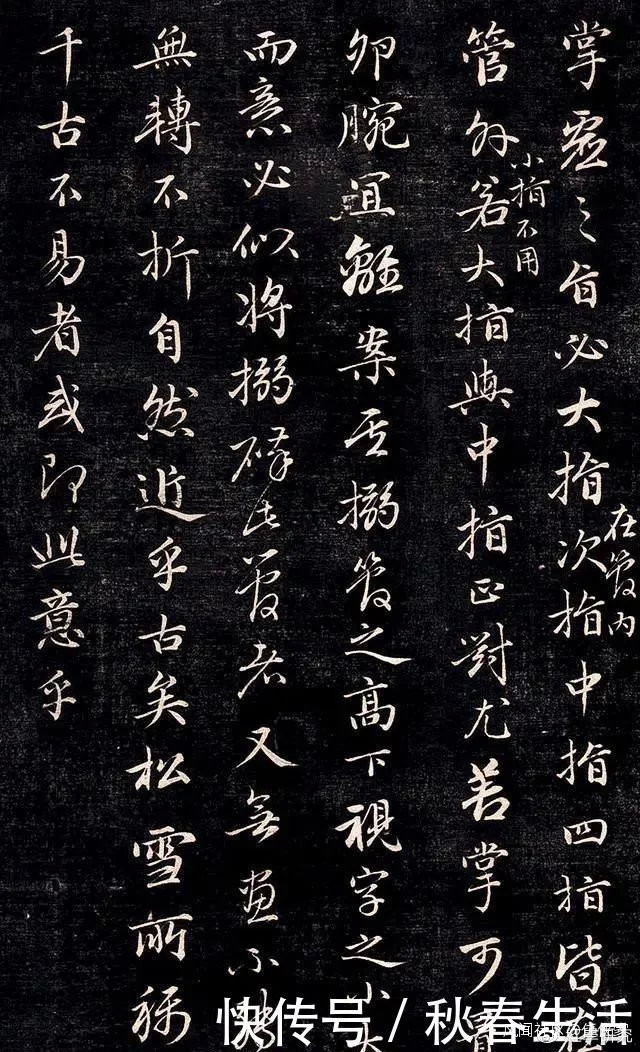 掌虛之旨必大指次指中指四指皆在
在管内
管外若大指與中指正對尤善掌可
小指不用
卵腕宜離案至搦管之高下視字之小大
而意必似將搦碎此管者又無畫不轉
無轉不折自然近乎古矣松雪所稱
千古不易者或即此意乎
快传号 / 秋春生活